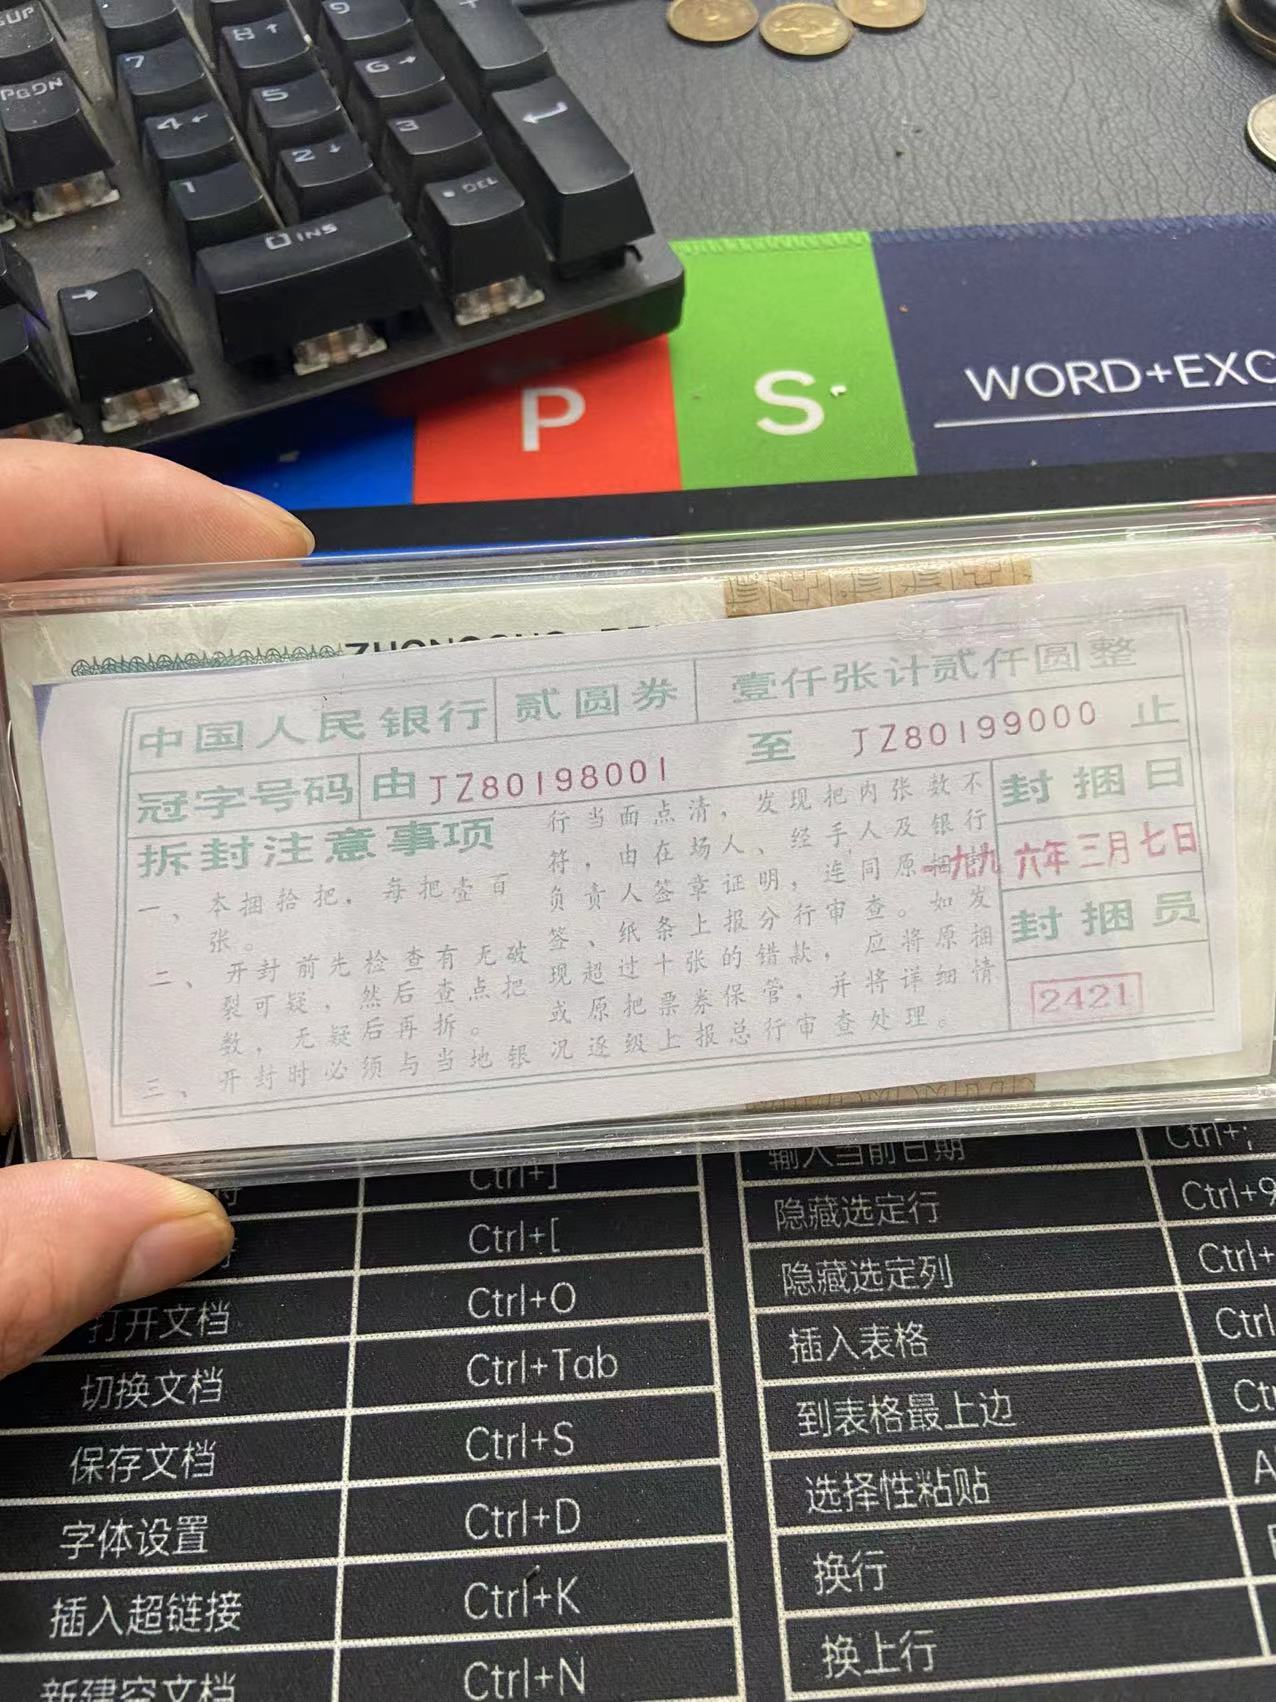 PGDN
7
8
9
4
5
6
1
2
3
0 INS
DEL
P
S
WORD+EXC
中国人民银行 贰圆券 壹仟张计贰仟圆整
冠字号码 由JZ80198001 至 JZ80199000 止
拆封注意事项
一、本捆拾把，每把壹百
张。
二、开封前先检查有无破
裂可疑，然后查点把
数，无疑后再拆。
三、开封时必须与当地银
行当面点清，发现把内张数不
符，由在场人、经手人及银行
负责人签章证明，连同原捆封
签、纸条上报分行审查。如发
现超过十张的错款，应将原捆
或原把票券保管，并将详细情
况逐级上报总行审查处理。
封捆日
一九九六年三月七日
封捆员
2421
Ctrl+]
Ctrl+[
打开文档 Ctrl+O
切换文档 Ctrl+Tab
保存文档 Ctrl+S
字体设置 Ctrl+D
插入超链接 Ctrl+K
新建空文档 Ctrl+N
输入当前日期 Ctrl+;
隐藏选定行 Ctrl+9
隐藏选定列 Ctrl+
插入表格 Ctrl
到表格最上边
选择性粘贴
换行
换上行